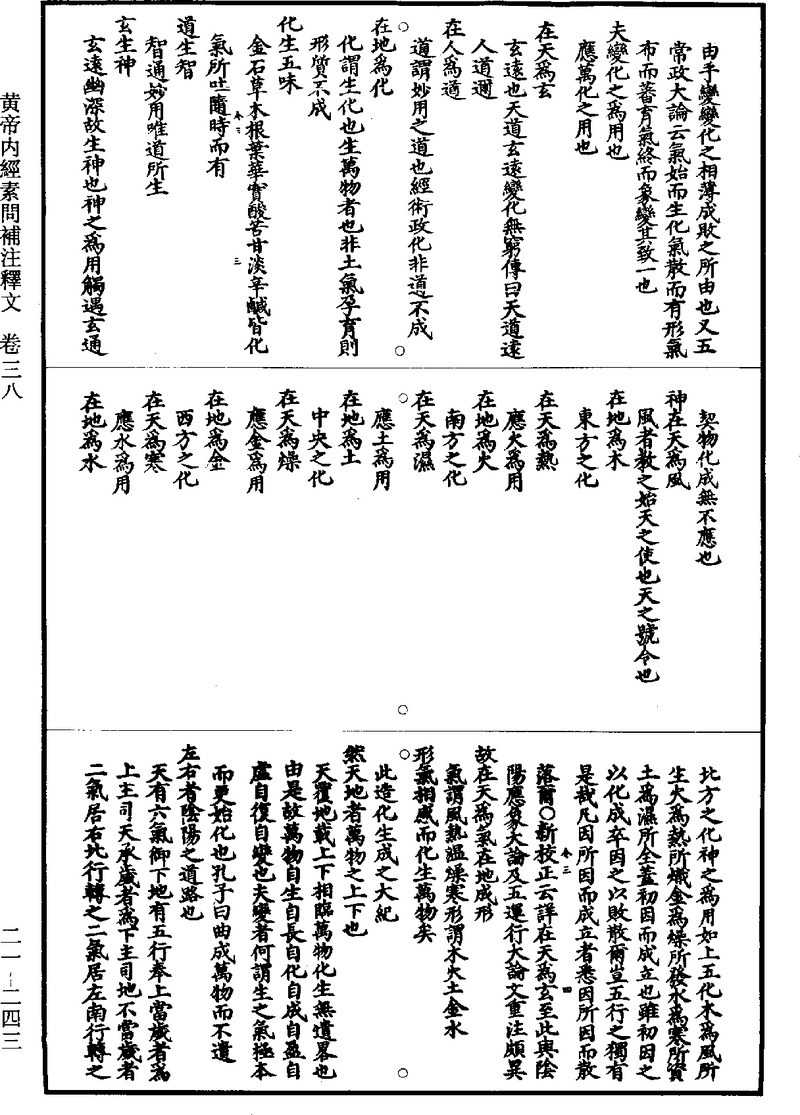 由乎變變化之相薄成敗之所由也又五
常政大論云氣始而生化氣散而有形氣
布而蕃育氣終而象變其致一也
夫變化之爲用也
應萬化之用也
在天爲玄
玄遠也天道玄遠變化無窮傳曰天道遠
人道邇
在人爲道
道謂妙用之道也經術政化非道不成
在地爲化
化謂生化也生萬物者也非土氣孕育則
形質不成
化生五味
金石草木根葉華實酸苦甘淡辛鹹皆化
氣所吐隨時而有
道生智
智通妙用唯道所生
玄生神
玄遠幽深故生神也神之爲用觸遇玄通
契物化成無不應也
神在天爲風
風者教之始天之使也天之號令也
在地爲木
東方之化
在天爲熱
應火爲用
在地爲火
南方之化
在天爲濕
應土爲用
在地爲土
中央之化
在天爲燥
應金爲用
在地爲金
西方之化
在天爲寒
應水爲用
在地爲水
北方之化神之爲用如上五化木爲風所
生火爲熱所熾金爲燥所發水爲寒所資
土爲濕所全蓋初因而成立也雖初因之
以化成卒因之以敗散爾豈五行之獨有
是哉凡因所因而成立者悉因所因而散
落爾○新校正云詳在天爲玄至此與陰
陽應象大論及五運行大論文重注頗異
故在天爲氣在地成形
氣謂風熱溫燥寒形謂木火土金水
形氣相感而化生萬物矣
此造化生成之大紀
然天地者萬物之上下也
天覆地載上下相臨萬物化生無遺畧也
由是故萬物自生自長自化自成自盈自
虛自復自變也夫變者何謂生之氣極本
而更始化也孔子曰曲成萬物而不遺
左右者陰陽之道路也
天有六氣御下地有五行奉上當歲者爲
上主司天承歲者爲下主司地不當歲者
二氣居右北行轉之二氣居左南行轉之
黄帝内經素問補注釋文 卷三八
二一-二四三